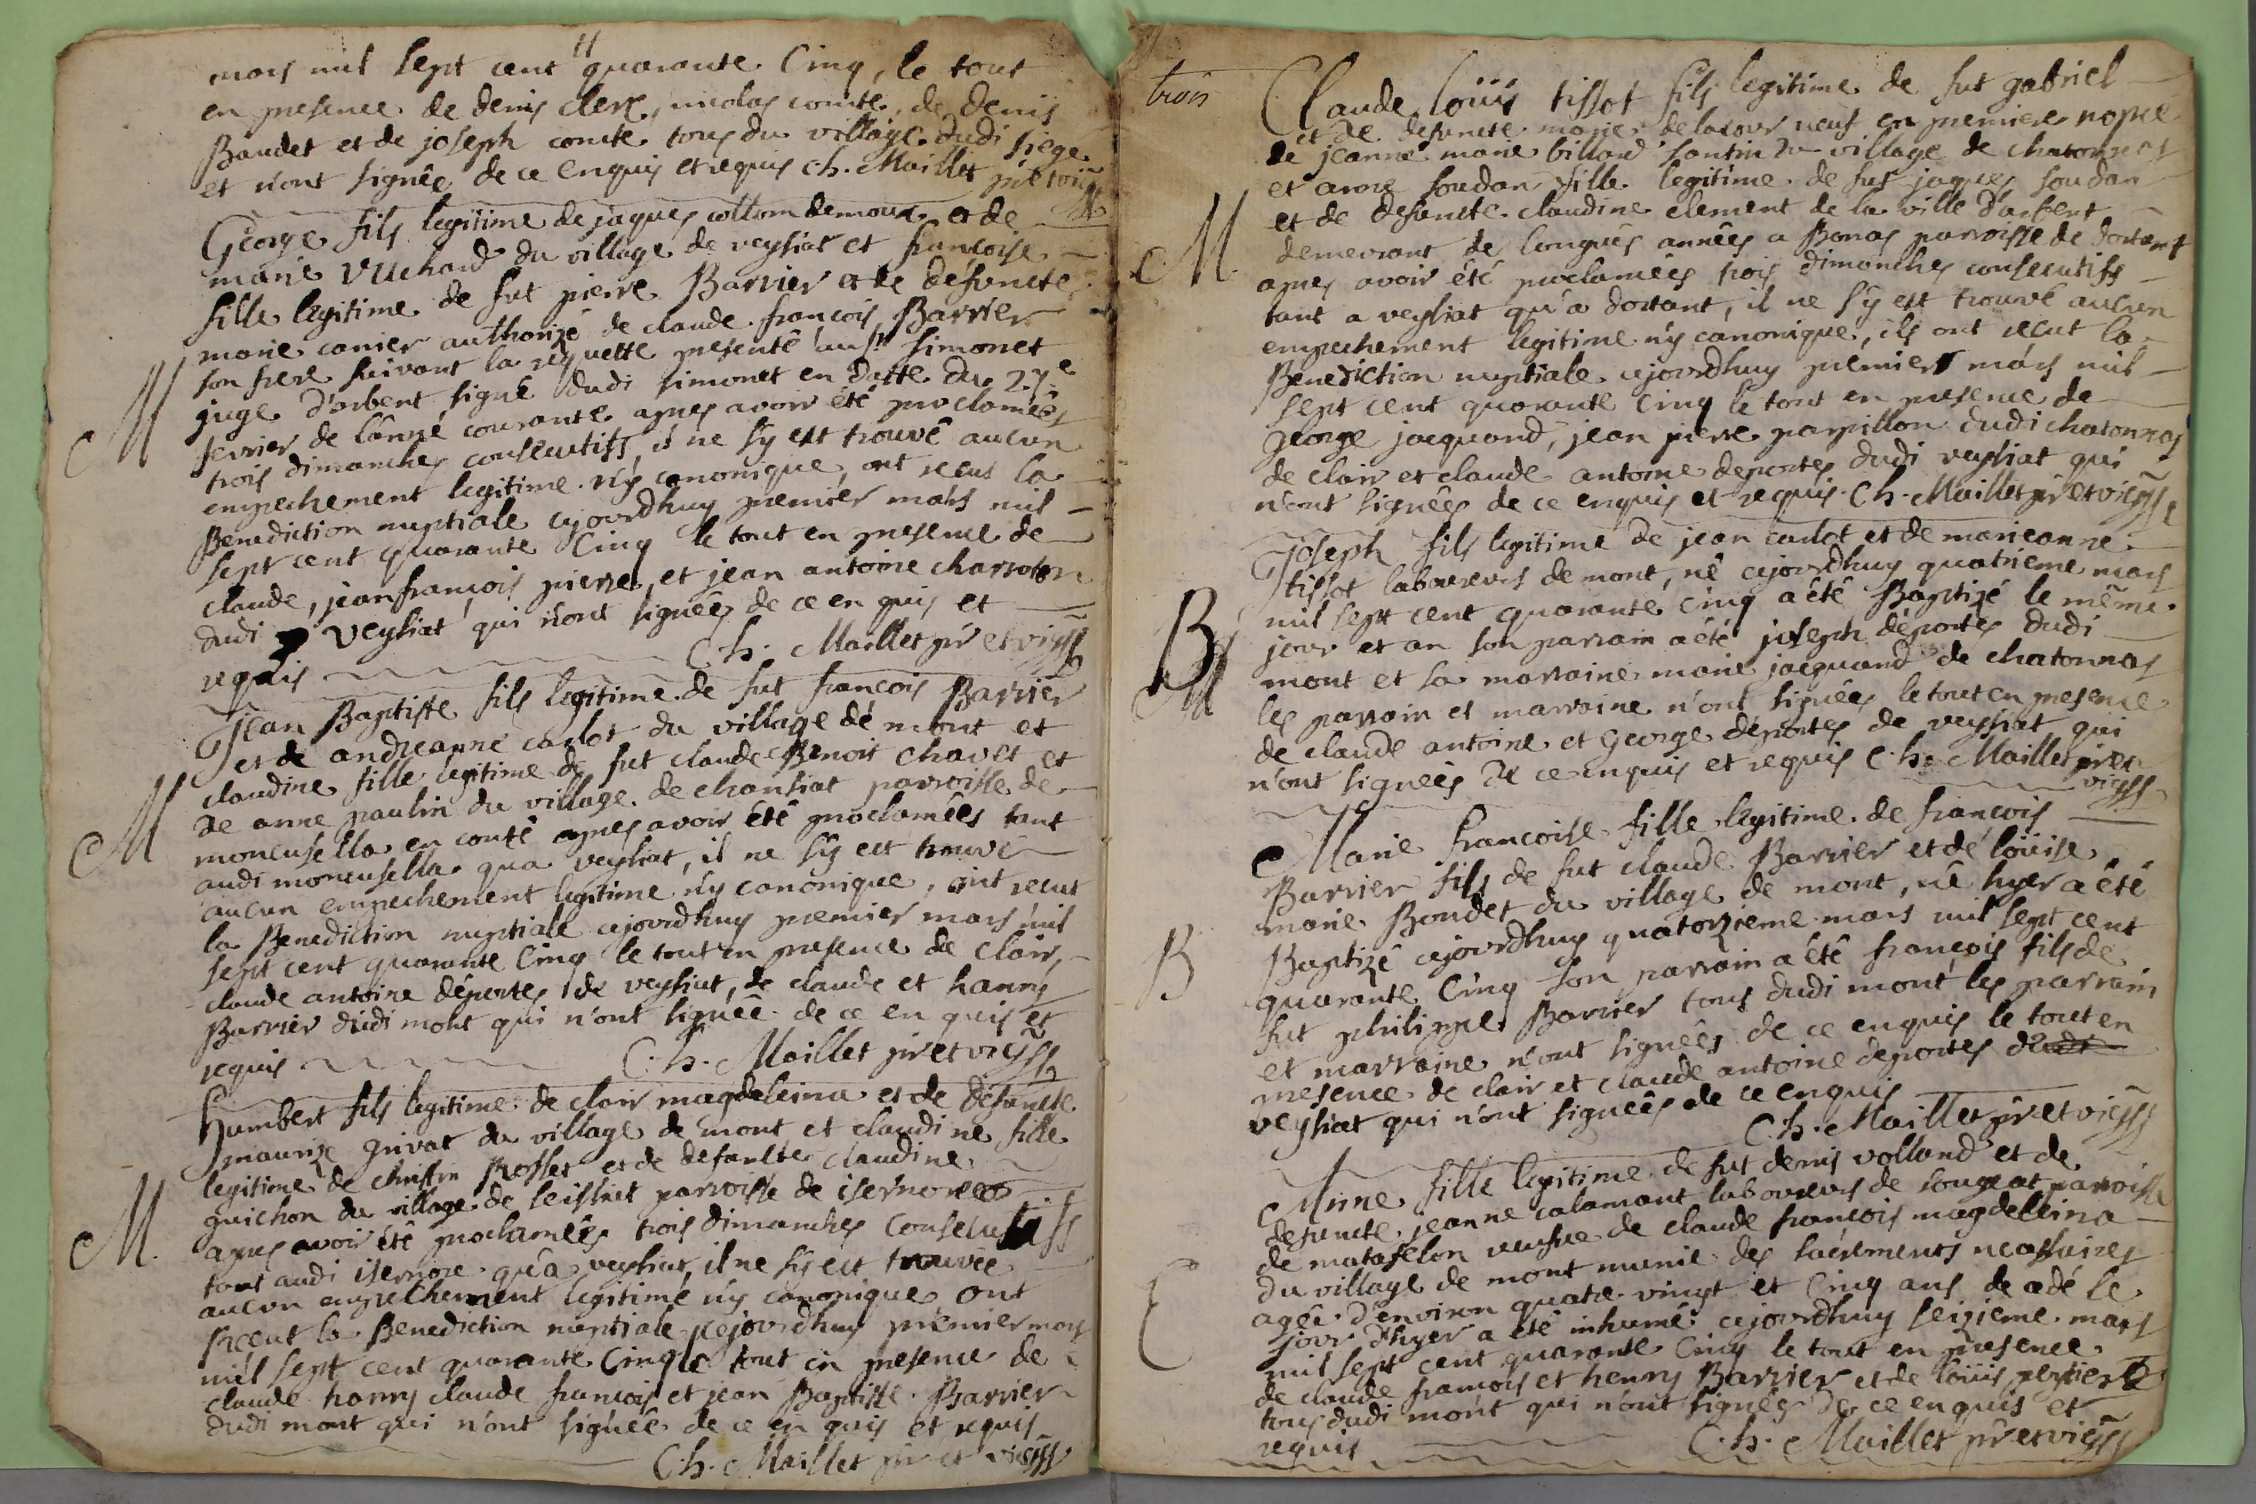 mars mil sept cent quarante Cinq, le tout
en presence de denis clerc, nicolas comte, de denis
Baudet et de joseph comte tous du village dudi siege
et n'ont signée de ce enquis et requis Ch. Maillet
George fils legitime de jaques collom demoux et de
marie Vuchard du village de veysiat et francoise
fille legitime de fut pierre Barrier et de defuncte
marie carrier authorizé de claude francois Barrier
son frere suivant la requette presenté au Sr simonet
juge d'arbent signé dudi simonet en datte du 27e
fevrier de l'année courante apres avoir été proclamées
trois dimanches consecutifs, il ne s'y est trouvé aucun
M
empechement legitime n'y canonique, ont receus la
Benediction nuptiale ajourdhuy premier mars mil
sept cent quarante Cinq le tout en presence de
claude, jean françois pierre, et jean antoine charroton
dudi veysiat qui n'ont signées de ce en quis et
requis Ch. Maillet pr et vicss
Jean Baptiste fils legitime de fut francois Barrier
et de andreanne carlot du village de mont et
claudine fille legitime de fut claude Benoit Chavet et
M
de anne paulin du village de chansiat parroisse de
moncusella en conté apres avoir été proclamées tant
audi moncusella qua veysiat, il ne s'y est trouvé
aucun empechement legitime n'y canonique, ont receut
la Benediction nuptiale ajourdhuy premier mars mil
sept cent quarante Cinq le tout en presence de Clair,
claude antoine déportes de veysiat, de claude et hanry
Barrier dudi mont qui n'ont signée de ce en quis et
requis C. h. Maillet pr et vicss
humbert fils legitime de clair magdeleina et de defuncte
maurize grivat du village de mont et claudine fille
legitime de christin Rosset et de defuncte claudine
guichon du village de leissiat parroisse de isernore
M.
apres avoir été proclamées trois dimanches consecutifs
tant audi isernore qu'a veysiat, il ne s'y est trouvée
aucun empechement legitime n'y canonique ont
receut la Benediction nuptiale cejourdhuy premier mars
mil sept cent quarante Cinq le tout en presence de
claude hanry claude francois et jean Baptiste Barrier
dudi mont qui n'ont signée de ce en quis et requis
C. h. Maillet pr et vicss
trois
Claude loüis tissot fils legitime de fut gabriel
et de defuncte marie delacour veuf en premiere nopce
de jeanne marie billoud santin du village de chatonnas
et anne soudan fille legitime de fut jaques soudan
et de defuncte claudine clement de la ville d'arbent
M.
demeurant de longues années a Bonas parroisse de dortant
apres avoir été proclamées trois dimanches consecutifs
tant a veysiat qu'a dortant, il ne s'y est trouvé aucun
empechement legitime n'y canonique, ils ont receut la
Benediction nuptiale ajourdhuy premier mars mil
sept cent quarante Cinq le tout en presence de
George jacquand, jean pierre parpillon dudi chatonnas
de clair et claude antoine deportes dudi veysiat qui
n'ont signées de ce enquis et requis. Ch. Maillet pr et vicss
Joseph fils legitime de jean carlot et de marieanne
tissot laboureurs de mont, né ajourdhuy quatrieme mars
B
mil sept cent quarante Cinq a été Baptizé le même
jour et an son parrain a été joseph déportes dudi
M
mont et sa marraine marie jacquand de chatonnas
les parrain et marraine n'ont signées le tout en presence
de claude antoine et George déportes de veysiat qui
n'ont signées de ce enquis et requis C. h. Maillet pr et
vicss
Marie francoise fille legitime de francois
Barrier fils de fut claude Barrier et de loüise
marie Baudet du village de mont, né hyer a été
B
Baptizé ajourdhuy quatorzieme mars mil sept cent
quarante Cinq son parrain a été françois fils de
fut philippe Barrier tous dudi mont les parrain
et marraine n'ont signées de ce enquis le tout en
presence de clair et claude antoine deportes dudi
veysiat qui n'ont signées de ce enquis
C. h. Maillet pr et vicss
Anne fille legitime de fut denis volland et de
defuncte jeanne calamant laboureurs de songeat parroisse
de matafelon veufve de claude francois magdeleina
du village de mont munie des sacrements necessaires
C
agée d'environ quatre vingt et Cinq ans decedé le
jour d'hyer a été inhumé ajourdhuy seizieme mars
mil sept cent quarante Cinq le tout en presence
de claude francois et henry Barrier et de loüis
tous dudi mont qui n'ont signées de ce enquis et
requis C. h. Maillet pr et vicss